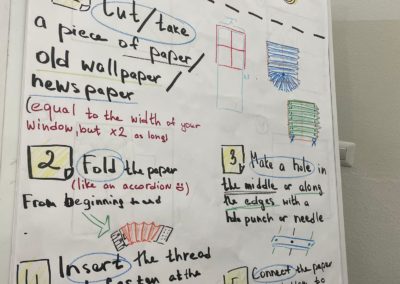 Cut/take
a piece of paper/
old wallpaper/
newspaper
(equal to the width of your
window, but x2 as long)
2 Fold the paper
(like an accordion)
From beginning to end
3 Make a hole in
the middle or along
the edges with a
hole punch or needle
Insert the thread
at the
5 Connect the paper
to